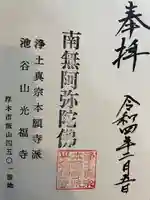 奉拝
令和四年二月五日
南無阿弥陀佛
浄土真宗本願寺派
池谷山光福寺
厚木市飯山四五〇一番地